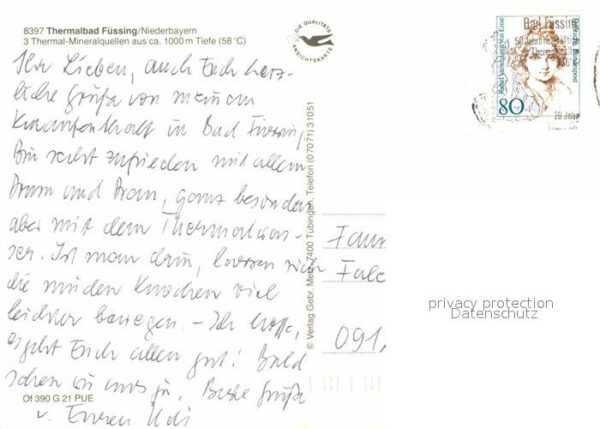 8397 Thermalbad Füssing/Niederbayern
3 Thermal-Mineralquellen aus ca. 1000 m Tiefe (58 °C)
Ihr Lieben, auch Euch herz-
liche Grüße von meinem
Kuraufenthalt in Bad Füssing
Bin sehr zufrieden mit allem
Drum und Dran, ganz besonders
aber mit dem Thermalwas-
ser. Ist man drin, lassen sich
die müden Knochen viel
leichter bewegen. – Ich hoffe,
es geht Euch allen gut! Bald
sehen wir uns ja. Beste Grüße
v. Eurem Udi
Of 390 G 21 PUE
DIE QUALITÄTS
ANSICHTSKARTE
© Verlag Gebr. Metz, 7400 Tübingen, Telefon (07071) 31051
Bad Füssing
Rahel Varnhagen von Ense
Deutsche Bundespost
80
Fam
Falc
091
privacy protection
Datenschutz